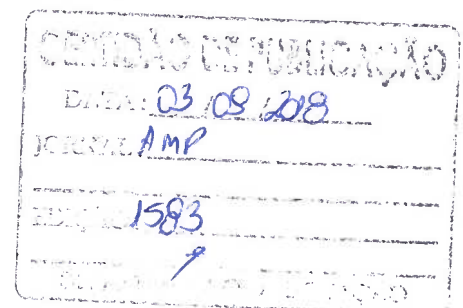 CERTIDÃO DE PUBLICAÇÃO
DATA: 03/09/2018
JORNAL: AMP
EDIÇÃO: 1583